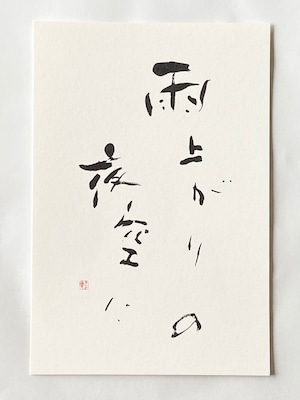 雨上がりの
夜空に